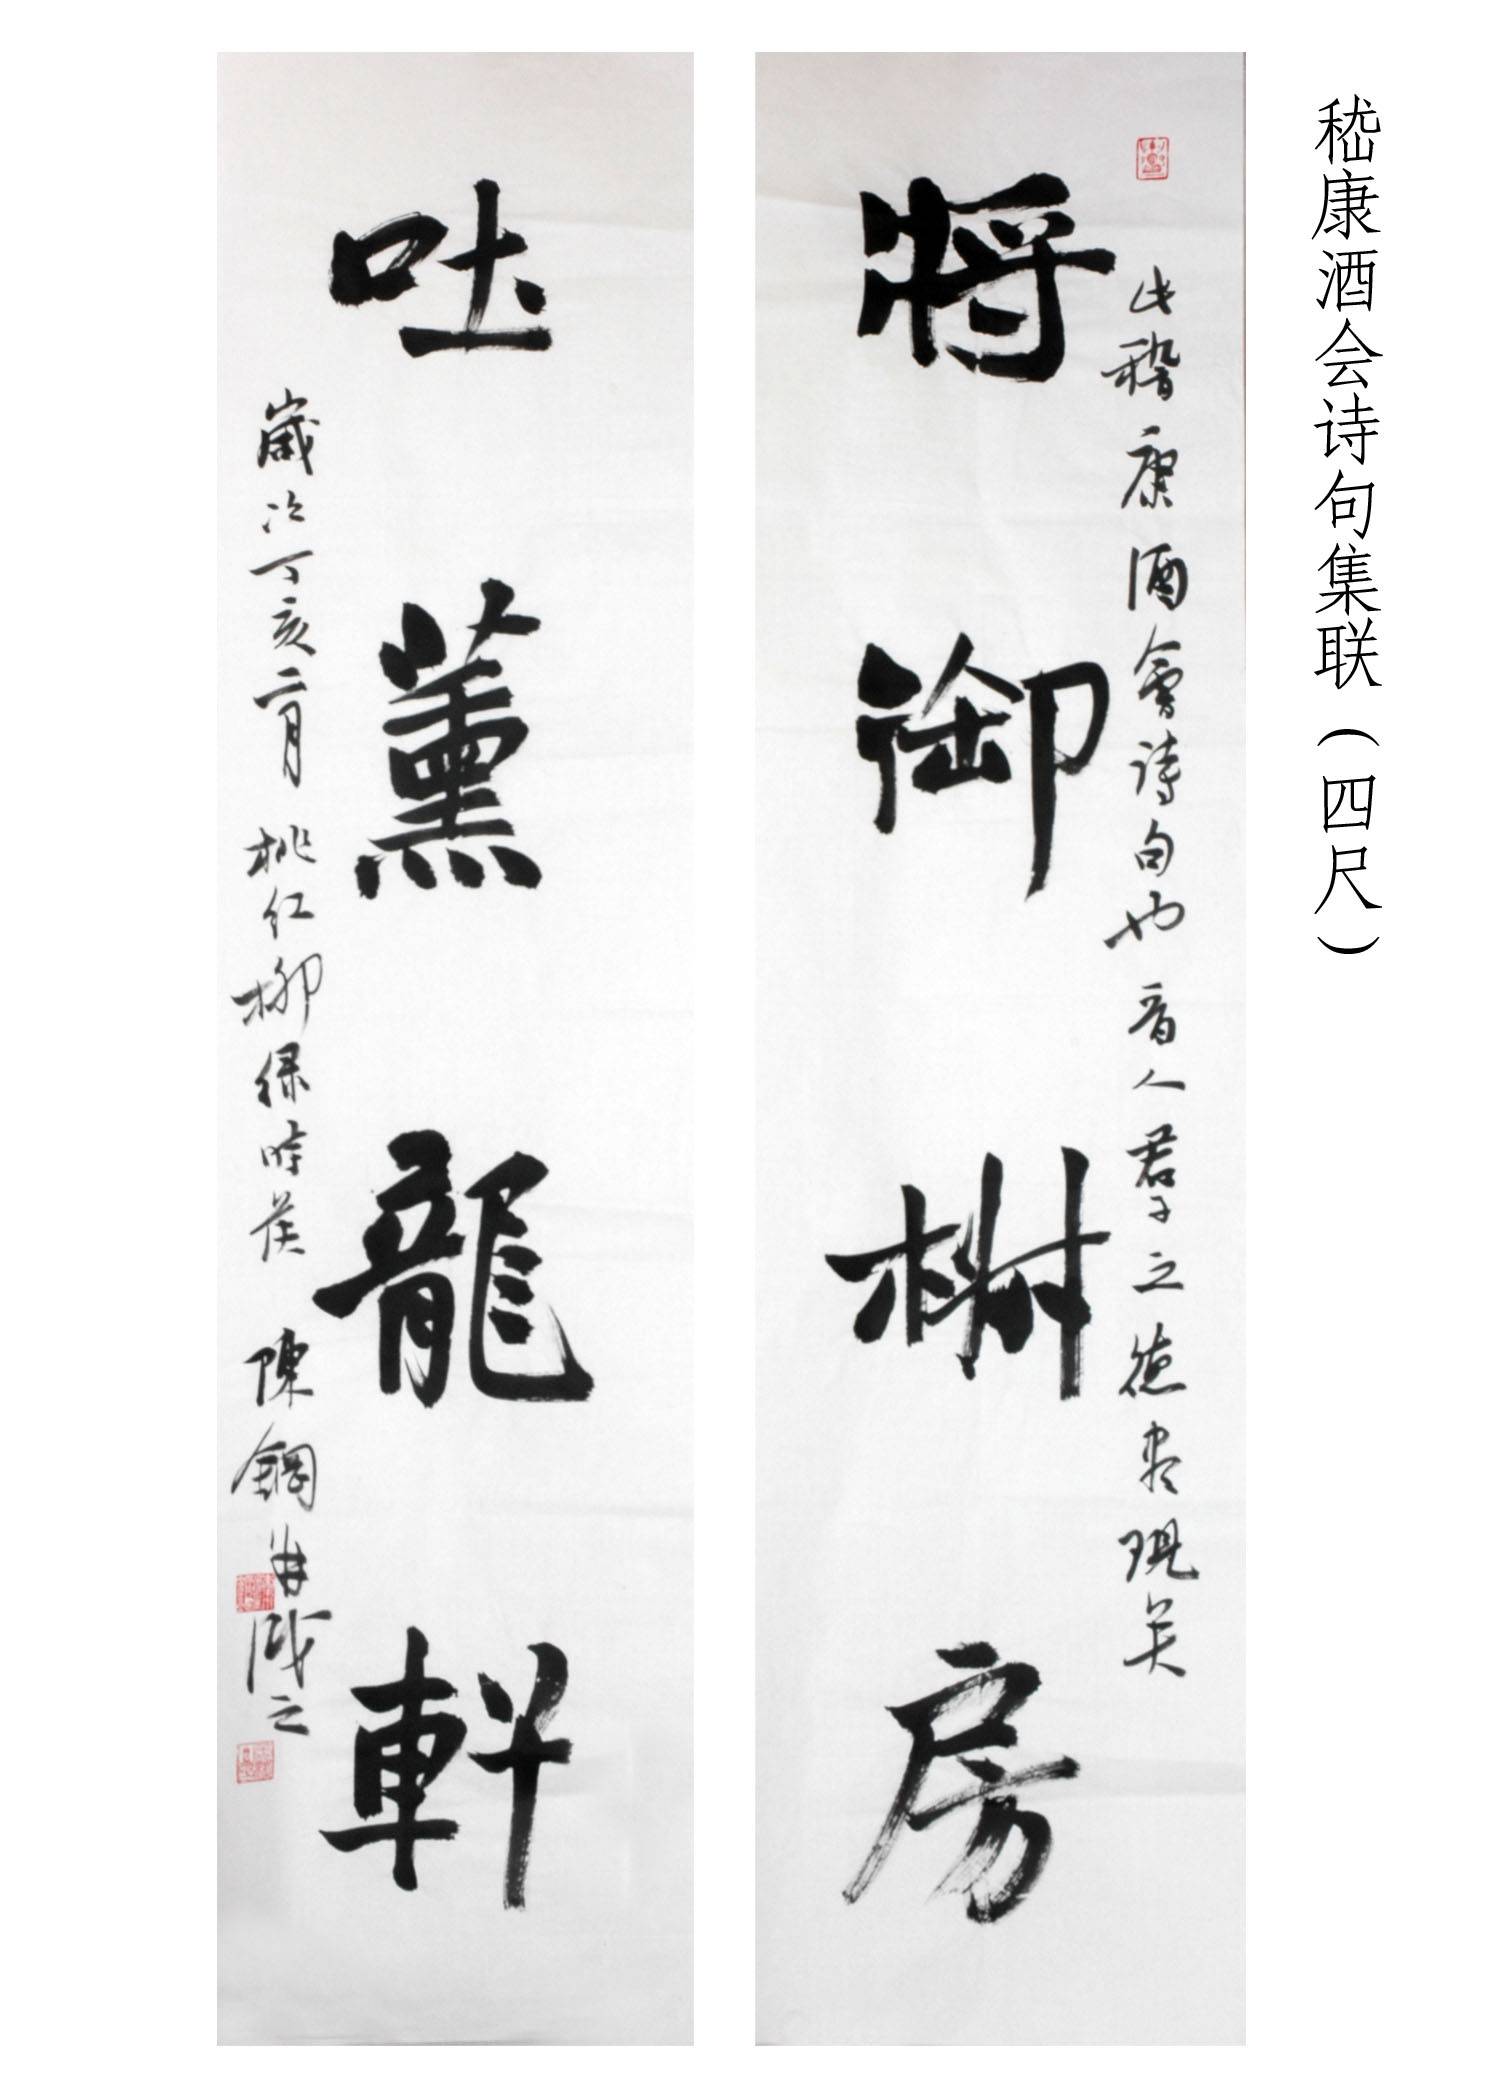 嵇康酒会诗句集联（四尺）
此稽康酒會詩句也晋人君子之德尽現矣
將御椒房
吐薰龍軒
歲次丁亥二月桃红柳绿時候陳鋼